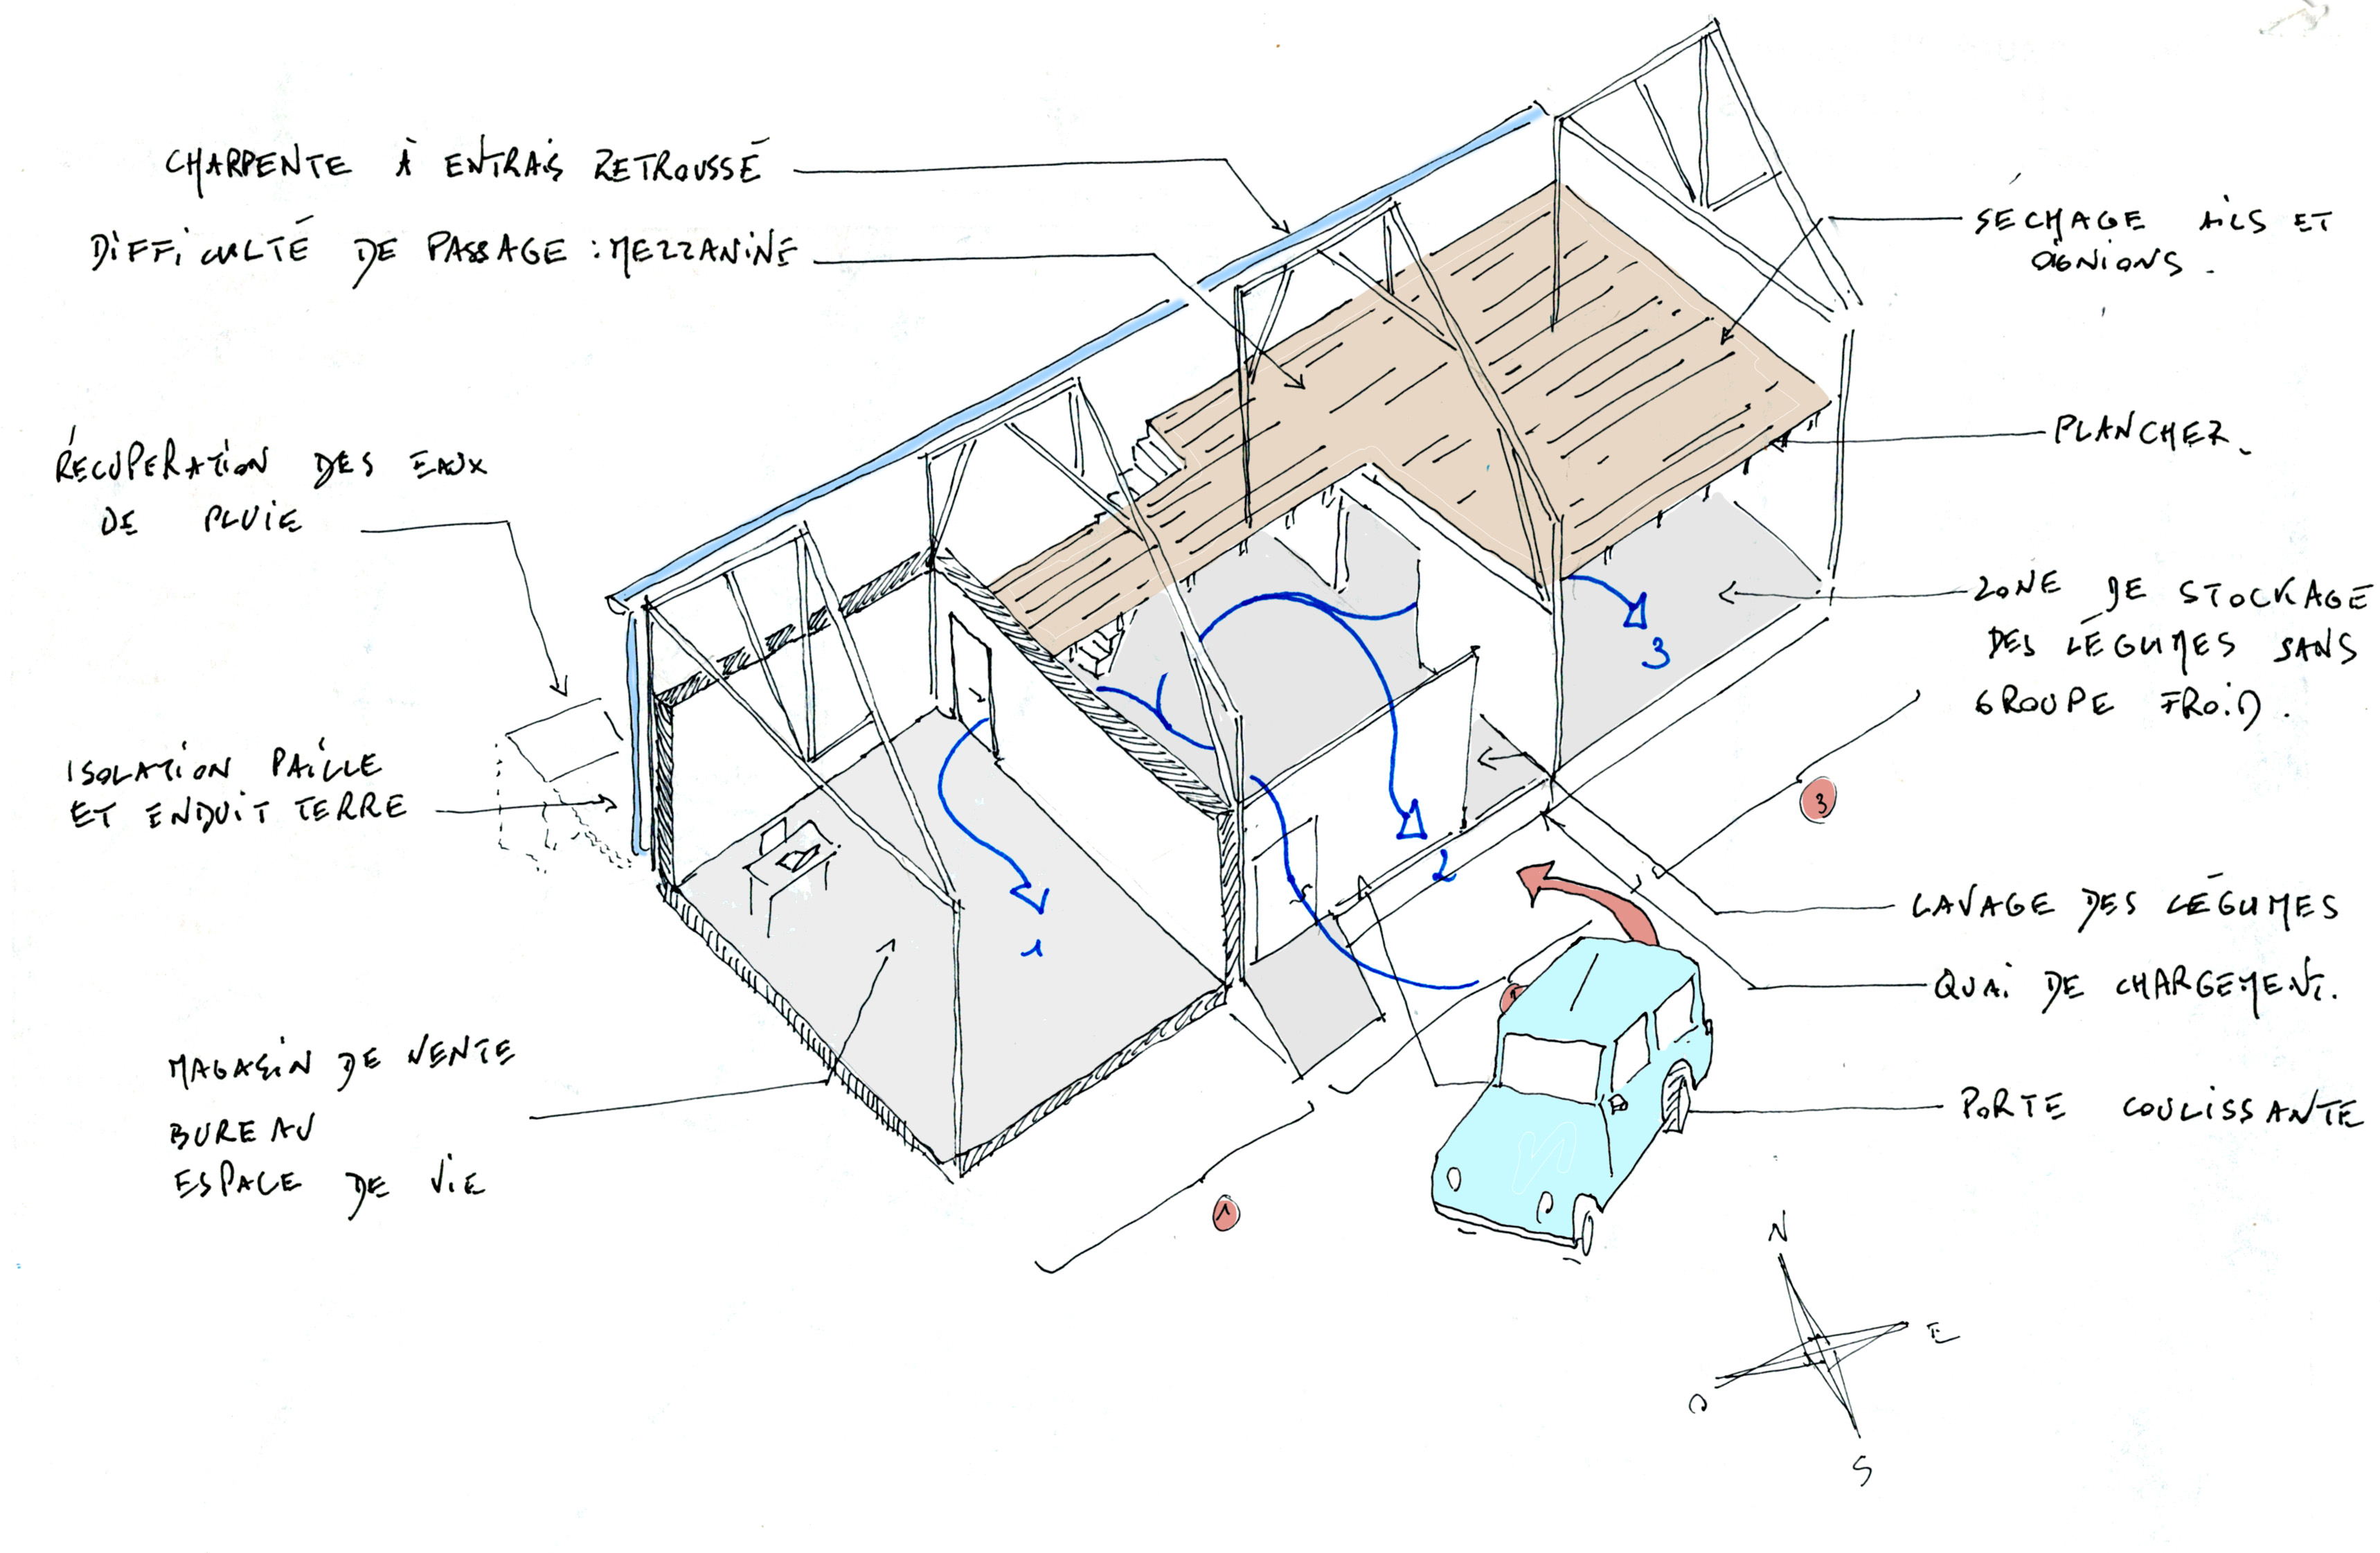 CHARPENTE À ENTRAIS RETROUSSÉ
DIFFICULTÉ DE PASSAGE : MEZZANINE
RÉCUPERATION DES EAUX
DE PLUIE
ISOLATION PAILLE
ET ENDUIT TERRE
MAGASIN DE VENTE
BUREAU
ESPACE DE VIE
SÉCHAGE AILS ET
OIGNIONS.
PLANCHER.
ZONE DE STOCKAGE
DES LÉGUMES SANS
GROUPE FROID.
3
3
2
1
LAVAGE DES LÉGUMES
QUAI DE CHARGEMENT.
PORTE COULISSANTE
1
N
E
O
S